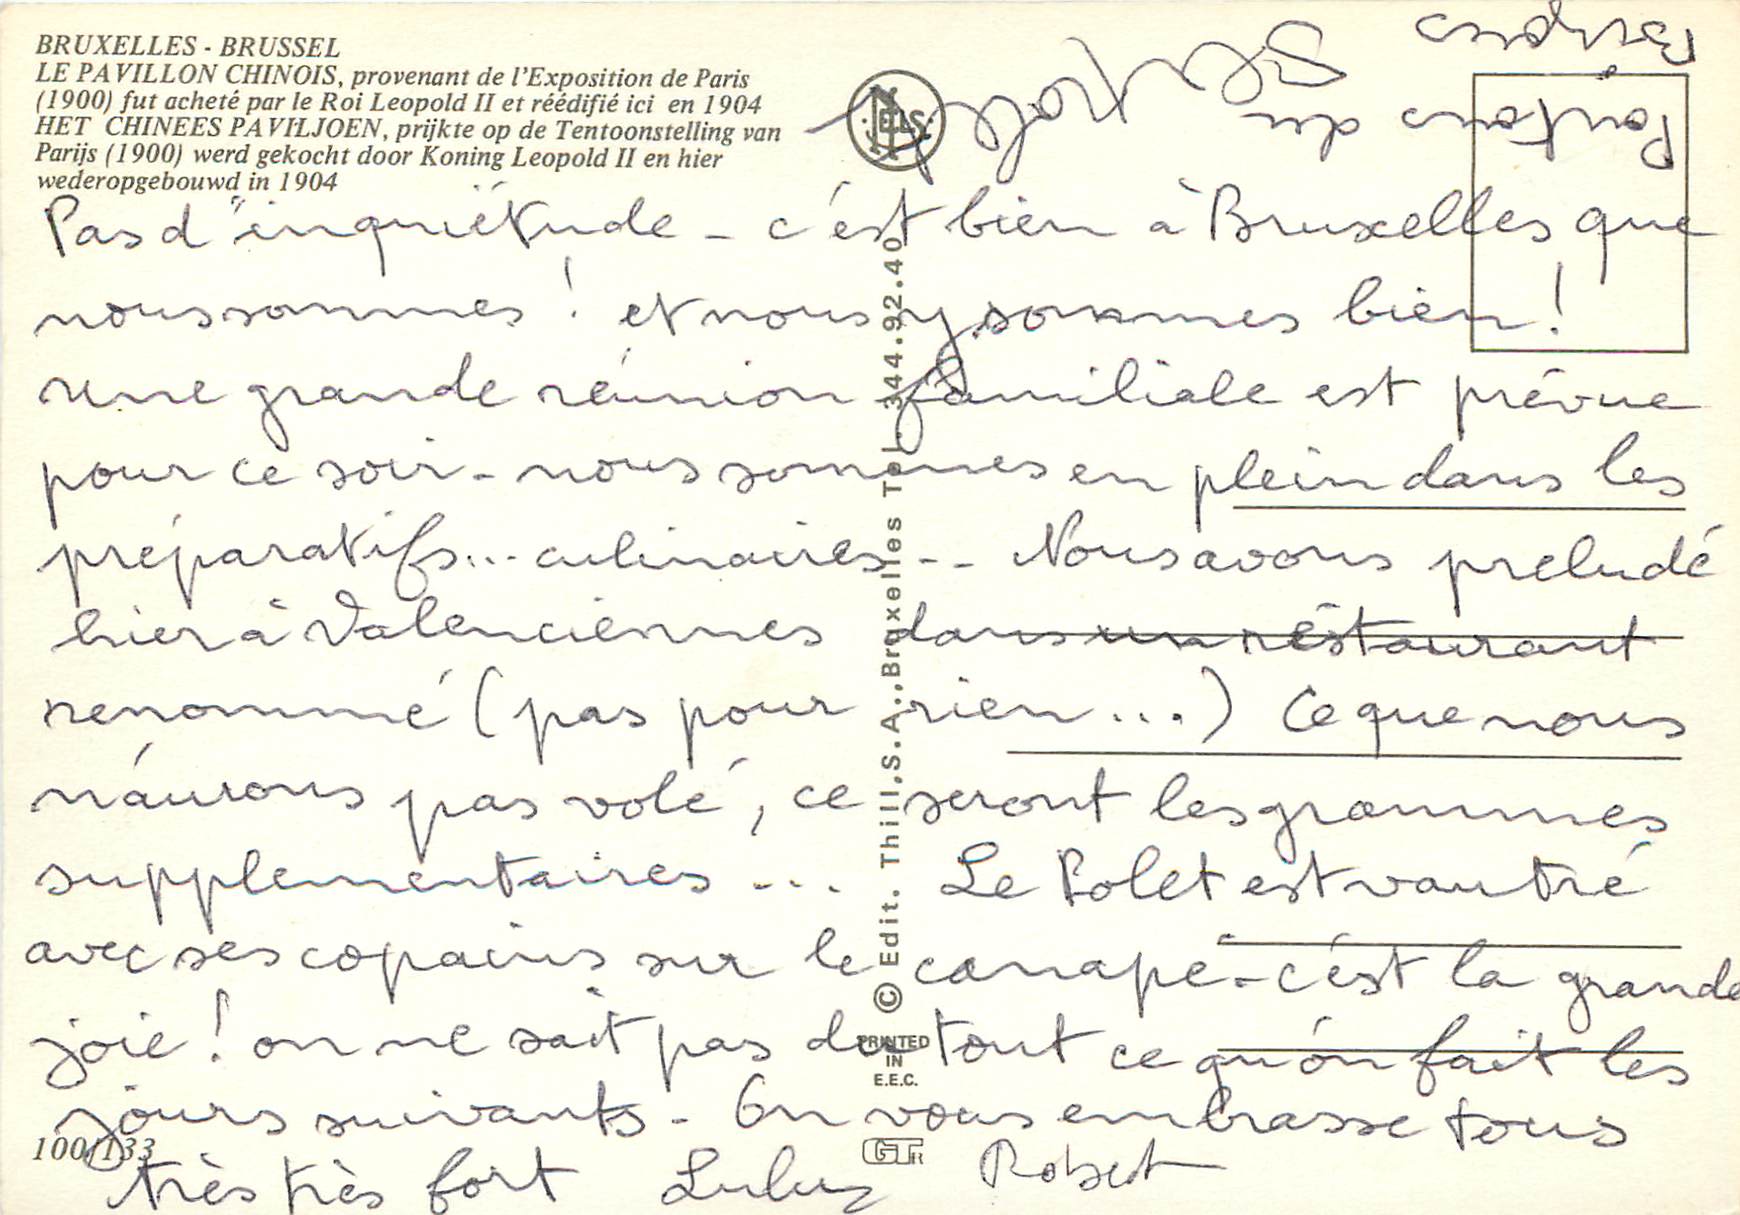 BRUXELLES - BRUSSEL
LE PAVILLON CHINOIS, provenant de l'Exposition de Paris
(1900) fut acheté par le Roi Leopold II et réédifié ici en 1904
HET CHINEES PAVILJOEN, prijkte op de Tentoonstelling van
Parijs (1900) werd gekocht door Koning Leopold II en hier
wederopgebouwd in 1904
NELS
Pas d'inquiétude - c'est bien à Bruxelles que
nous sommes ! et nous y sommes bien !
une grande réunion familiale est prévue
pour ce soir - nous sommes en plein dans les
préparatifs... culinaires -- Nous avons preludé
hier à Valenciennes dans un restaurant
renommé (pas pour rien ...) Ce que nous
n'aurons pas volé, ce seront les grammes
supplementaires ... Le Polet est vautré
avec ses copains sur le canapé - c'est la grande
joie ! on ne sait pas du tout ce qu'on fait les
jours suivants - On vous embrasse tous
très très fort Luluy Robert
© Edit. Thill, S.A., Bruxelles Tel. 344.92.40
PRINTED
IN
E.E.C.
100/133
GTR
Bisous
du